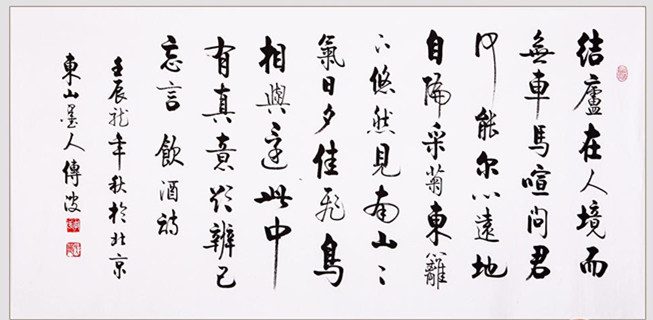 结廬在人境而
無車馬喧問君
何能尔心遠地
自偏采菊東籬
下悠然見南山〻
氣日夕佳飛鳥
相與還此中
有真意欲辨已
忘言 飲酒詩
壬辰龍年秋於北京
東山墨人傳波